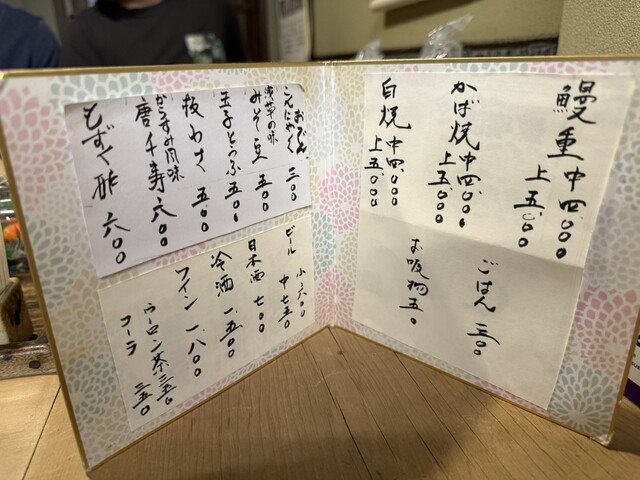 鰻重 中 四、〇〇〇
上 五、〇〇〇
かば焼 中 四、〇〇〇
上 五、〇〇〇
白焼 中 四、〇〇〇
上 五、〇〇〇
ごはん 三〇〇
お吸物 五〇
おでん
こんにゃく 三〇〇
浅草の味
みそ豆 五〇〇
玉子とうふ 五〇〇
板わさ 五〇〇
からすみ風味
唐千寿 六〇〇
もずく酢 六〇〇
ビール 小 六〇〇
中 七五〇
日本酒 七〇〇
冷酒 一、五〇〇
ワイン 一、八〇〇
ウーロン茶 三五〇
コーラ 三五〇